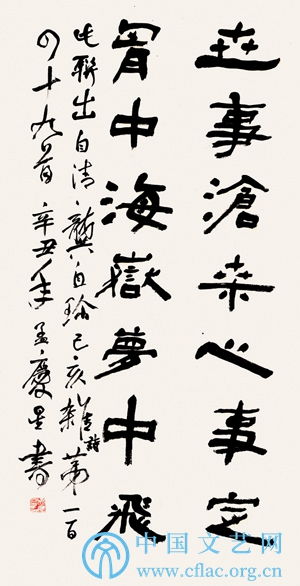 世事滄桒心事定
胷中海嶽夢中飛
此聯出自清龔自珍己亥雜詩第一百
四十九首 辛丑年 孟慶星書
中国文艺网
www.cflac.org.cn